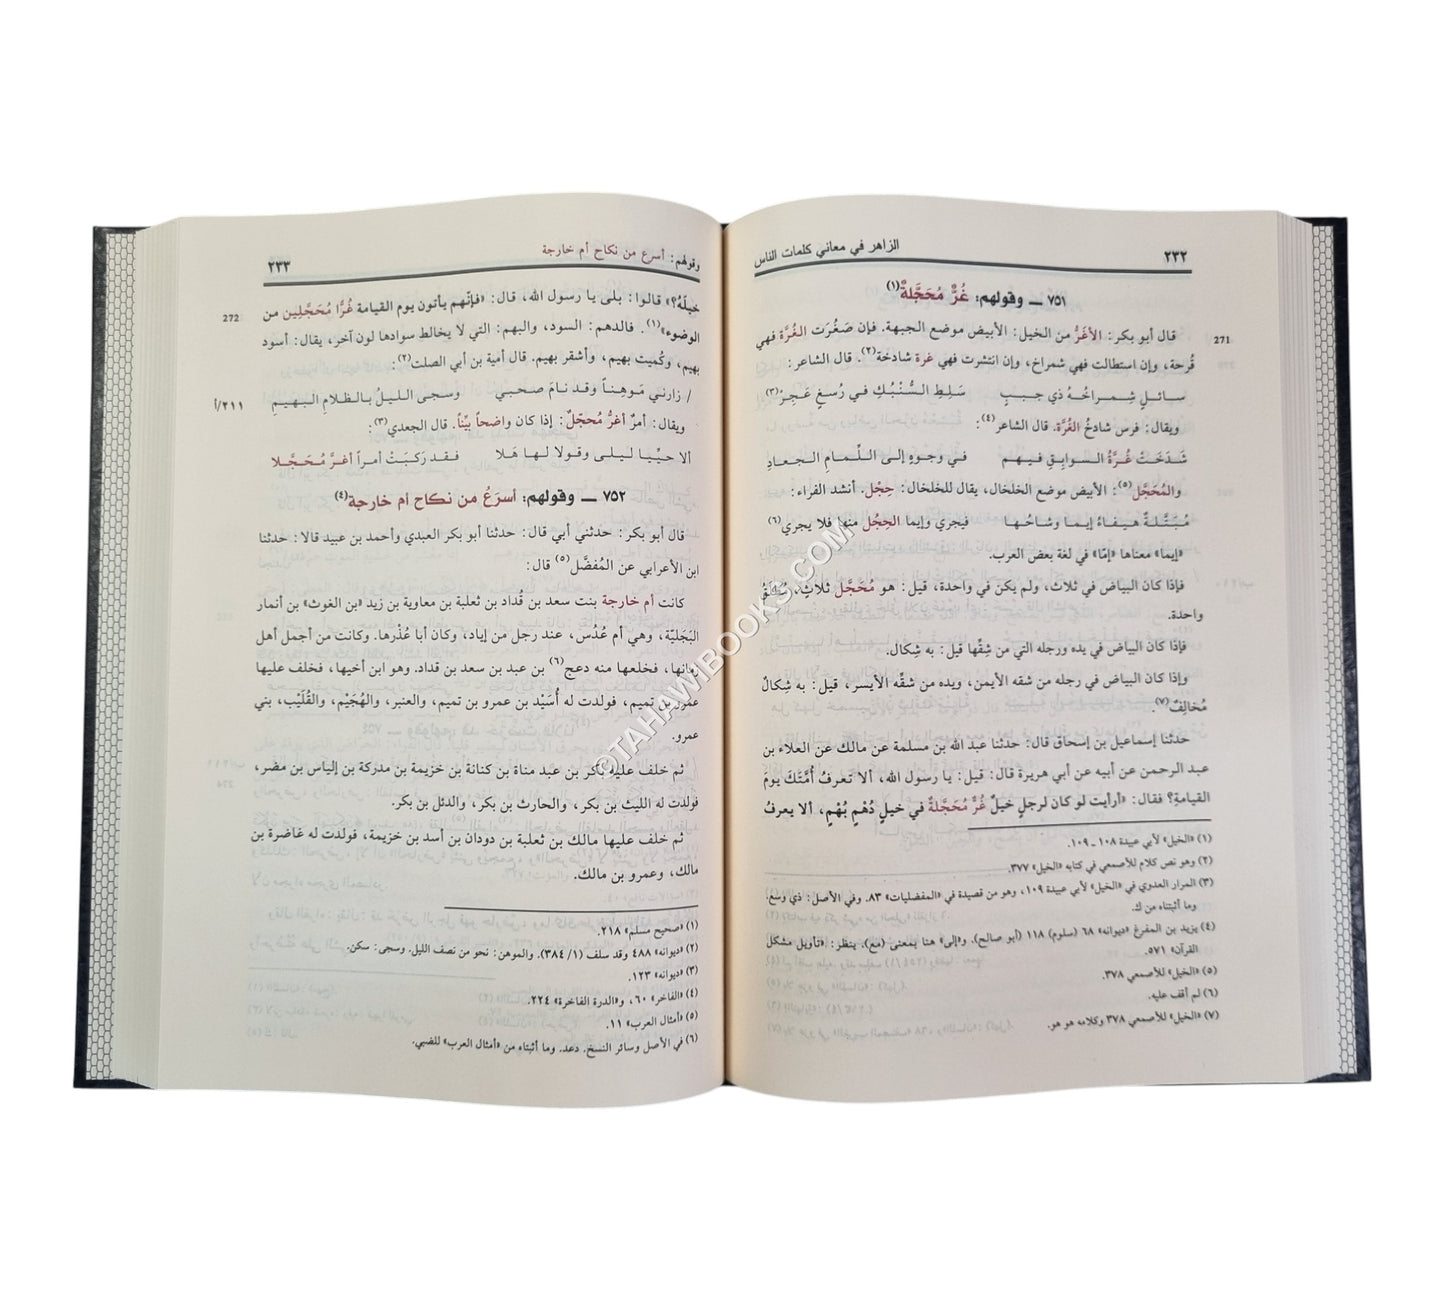 ٢٣٢
الزاهر في معاني كلمات الناس
٧٥١ ـ وقولهم: غُرٌّ مُحَجَّلةٌ(١)
271
قال أبو بكر: الأغَرُّ من الخيل: الأبيض موضع الجبهة. فإن صَغُرَت الغُرَّة فهي
قُرحة، وإن استطالت فهي شمراخ، وإن انتشرت فهي غرة شادخة(٢). قال الشاعر:
سـائـلٍ شِـمـراخُـهُ ذي جـبـبٍ سَـلِـطِ السُّنْبُـكِ في رُسـغٍ عَـجِـرْ(٣)
ويقال: فرس شادخُ الغُرَّة. قال الشاعر(٤):
شَـدَخَـتْ غُـرَّةُ السـوابِـقِ فـيـهـم في وجـوهٍ إلـى اللِّـمـامِ الـجـعـادِ
والمُحَجَّل(٥): الأبيض موضع الخلخال، يقال للخلخال: حِجْل. أنشد الفراء:
مُـبَـتَّـلـةٌ هـيـفـاءُ إيـمـا وشـاحُـهـا فيجري وإيما الحِجْل منها فلا يجري(٦)
«إيما» معناها «إمّا» في لغة بعض العرب.
فإذا كان البياض في ثلاث، ولم يكن في واحدة، قيل: هو مُحَجَّل ثلاث، مُطْلَقُ
واحدة.
فإذا كان البياض في يده ورجله التي من شِقِّها قيل: به شِكال.
وإذا كان البياض في رجله من شقه الأيمن، ويده من شقِّه الأيسر، قيل: به شِكالٌ
مُخالِفٌ(٧).
حدثنا إسماعيل بن إسحاق قال: حدثنا عبد الله بن مسلمة عن مالك عن العلاء بن
عبد الرحمن عن أبيه عن أبي هريرة قال: قيل: يا رسول الله، ألا تعرفُ أمَّتَكَ يومَ
القيامة؟ فقال: «أرأيت لو كان لرجلٍ خيلٌ غُرٌّ مُحَجَّلةٌ في خيلٍ دُهْمٍ بُهْمٍ، ألا يعرفُ
(١) «الخيل» لأبي عبيدة ١٠٨ ـ ١٠٩.
(٢) وهو نص كلام للأصمعي في كتابه «الخيل» ٣٧٧.
(٣) المرار العدوي في «الخيل» لأبي عبيدة ١٠٩، وهو من قصيدة في «المفضليات» ٨٣. وفي الأصل: ذي وسع.
وما أثبتناه من ك.
(٤) يزيد بن المفرغ «ديوانه» ٦٨ (سلوم) ١١٨ (أبو صالح). و«إلى» هنا بمعنى (مع). ينظر: «تأويل مشكل
القرآن» ٥٧١.
(٥) «الخيل» للأصمعي ٣٧٨.
(٦) لم أقف عليه.
(٧) «الخيل» للأصمعي ٣٧٨ وكلامه هو هو.
وقولهم: أسرع من نكاح أم خارجة
٢٣٣
خيلَهُ؟» قالوا: بلى يا رسول الله، قال: «فإنّهم يأتون يوم القيامة غُرًّا مُحَجَّلِين من
272
الوضوء»(١). فالدهم: السود، والبهم: التي لا يخالط سوادها لون آخر، يقال: أسود
بهيم، وكُميت بهيم، وأشقر بهيم. قال أمية بن أبي الصلت(٢):
/ زارني مَـوهِـنـاً وقـد نـامَ صـحـبـي وسـجـى الليـلُ بـالـظـلامِ الـبـهـيـمِ
٢١١/أ
ويقال: أمرٌ أغرُّ مُحجّلٌ: إذا كان واضحاً بيِّناً. قال الجعدي(٣):
ألا حـيِّـيـا لـيـلـى وقـولا لـهـا هَـلا فـقـد رَكـبَـتْ أمـراً أغـرَّ مُـحَـجَّـلا
٧٥٢ ـ وقولهم: أسرَعُ من نكاح أم خارجة(٤)
قال أبو بكر: حدثني أبي قال: حدثنا أبو بكر العبدي وأحمد بن عبيد قالا: حدثنا
ابن الأعرابي عن المُفضَّل(٥) قال:
كانت أم خارجة بنت سعد بن قُداد بن ثعلبة بن معاوية بن زيد «بن الغوث» بن أنمار
البَجَليّة، وهي أم عُدُس، عند رجل من إياد، وكان أبا عُذْرها. وكانت من أجمل أهل
زمانها، فخلعها منه دعج(٦) بن عبد بن سعد بن قداد. وهو ابن أخيها، فخلف عليها
عمرو بن تميم، فولدت له أُسَيْد بن عمرو بن تميم، والعنبر، والهُجَيْم، والقُلَيْب، بني
عمرو.
ثم خلف عليه بكر بن عبد مناة بن كنانة بن خزيمة بن مدركة بن إلياس بن مضر،
فولدت له الليث بن بكر، والحارث بن بكر، والدئل بن بكر.
ثم خلف عليها مالك بن ثعلبة بن دودان بن أسد بن خزيمة، فولدت له غاضرة بن
مالك، وعمرو بن مالك.
(١) «صحيح مسلم» ٢١٨.
(٢) «ديوانه» ٤٨٨ وقد سلف (١/ ٣٨٤). والموهن: نحو من نصف الليل. وسجى: سكن.
(٣) «ديوانه» ١٢٣.
(٤) «الفاخر» ٦٠، و«الدرة الفاخرة» ٢٢٤.
(٥) «أمثال العرب» ١١.
(٦) في الأصل وسائر النسخ. دعد. وما أثبتناه من «أمثال العرب» للضبي.
©TAHAWIBOOKS.COM